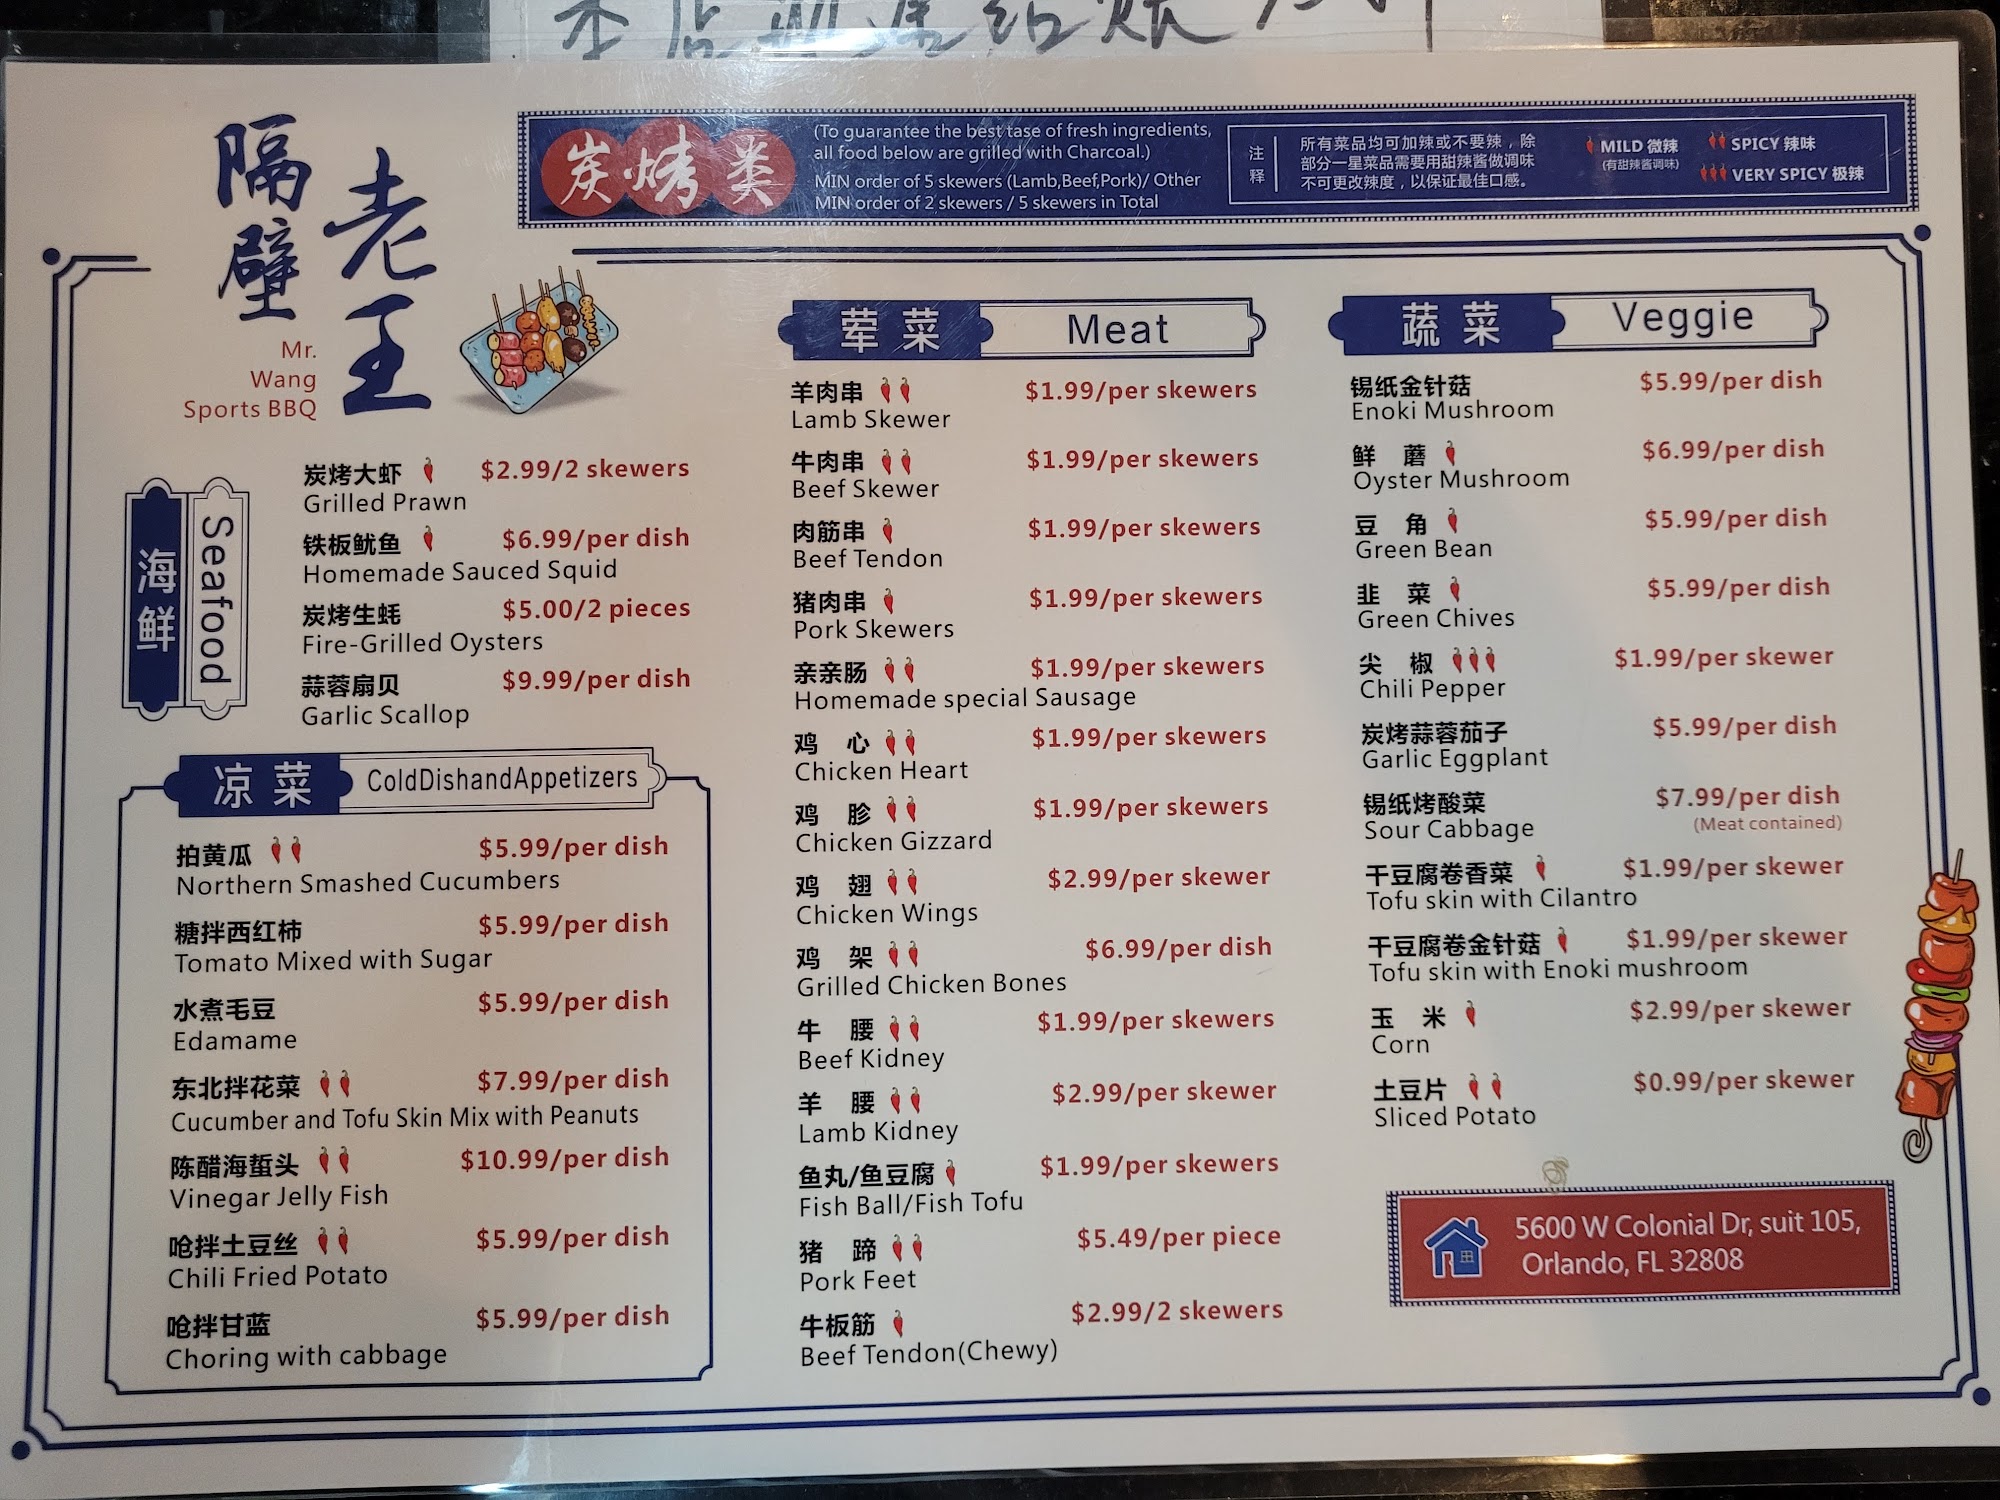 隔壁
老王
Mr.
Wang
Sports BBQ
炭烤类
(To guarantee the best tase of fresh ingredients,
all food below are grilled with Charcoal.)
MIN order of 5 skewers (Lamb,Beef,Pork)/ Other
MIN order of 2 skewers / 5 skewers in Total
注释
所有菜品均可加辣或不要辣，除
部分一星菜品需要用甜辣酱做调味
不可更改辣度，以保证最佳口感。
MILD 微辣
(有甜辣酱调味)
SPICY 辣味
VERY SPICY 极辣
海鲜
Seafood
炭烤大虾 $2.99/2 skewers
Grilled Prawn
铁板鱿鱼 $6.99/per dish
Homemade Sauced Squid
炭烤生蚝 $5.00/2 pieces
Fire-Grilled Oysters
蒜蓉扇贝 $9.99/per dish
Garlic Scallop
凉菜 ColdDishandAppetizers
拍黄瓜 $5.99/per dish
Northern Smashed Cucumbers
糖拌西红柿 $5.99/per dish
Tomato Mixed with Sugar
水煮毛豆 $5.99/per dish
Edamame
东北拌花菜 $7.99/per dish
Cucumber and Tofu Skin Mix with Peanuts
陈醋海蜇头 $10.99/per dish
Vinegar Jelly Fish
呛拌土豆丝 $5.99/per dish
Chili Fried Potato
呛拌甘蓝 $5.99/per dish
Choring with cabbage
荤菜 Meat
羊肉串 $1.99/per skewers
Lamb Skewer
牛肉串 $1.99/per skewers
Beef Skewer
肉筋串 $1.99/per skewers
Beef Tendon
猪肉串 $1.99/per skewers
Pork Skewers
亲亲肠 $1.99/per skewers
Homemade special Sausage
鸡 心 $1.99/per skewers
Chicken Heart
鸡 胗 $1.99/per skewers
Chicken Gizzard
鸡 翅 $2.99/per skewer
Chicken Wings
鸡 架 $6.99/per dish
Grilled Chicken Bones
牛 腰 $1.99/per skewers
Beef Kidney
羊 腰 $2.99/per skewer
Lamb Kidney
鱼丸/鱼豆腐 $1.99/per skewers
Fish Ball/Fish Tofu
猪 蹄 $5.49/per piece
Pork Feet
牛板筋 $2.99/2 skewers
Beef Tendon(Chewy)
蔬菜 Veggie
锡纸金针菇 $5.99/per dish
Enoki Mushroom
鲜 蘑 $6.99/per dish
Oyster Mushroom
豆 角 $5.99/per dish
Green Bean
韭 菜 $5.99/per dish
Green Chives
尖 椒 $1.99/per skewer
Chili Pepper
炭烤蒜蓉茄子 $5.99/per dish
Garlic Eggplant
锡纸烤酸菜 $7.99/per dish
Sour Cabbage (Meat contained)
干豆腐卷香菜 $1.99/per skewer
Tofu skin with Cilantro
干豆腐卷金针菇 $1.99/per skewer
Tofu skin with Enoki mushroom
玉 米 $2.99/per skewer
Corn
土豆片 $0.99/per skewer
Sliced Potato
5600 W Colonial Dr, suit 105,
Orlando, FL 32808